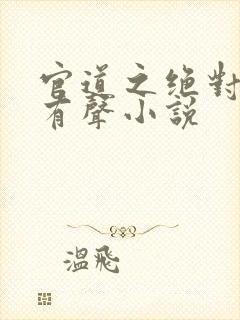 官道之绝對
有聲小説
溫飛